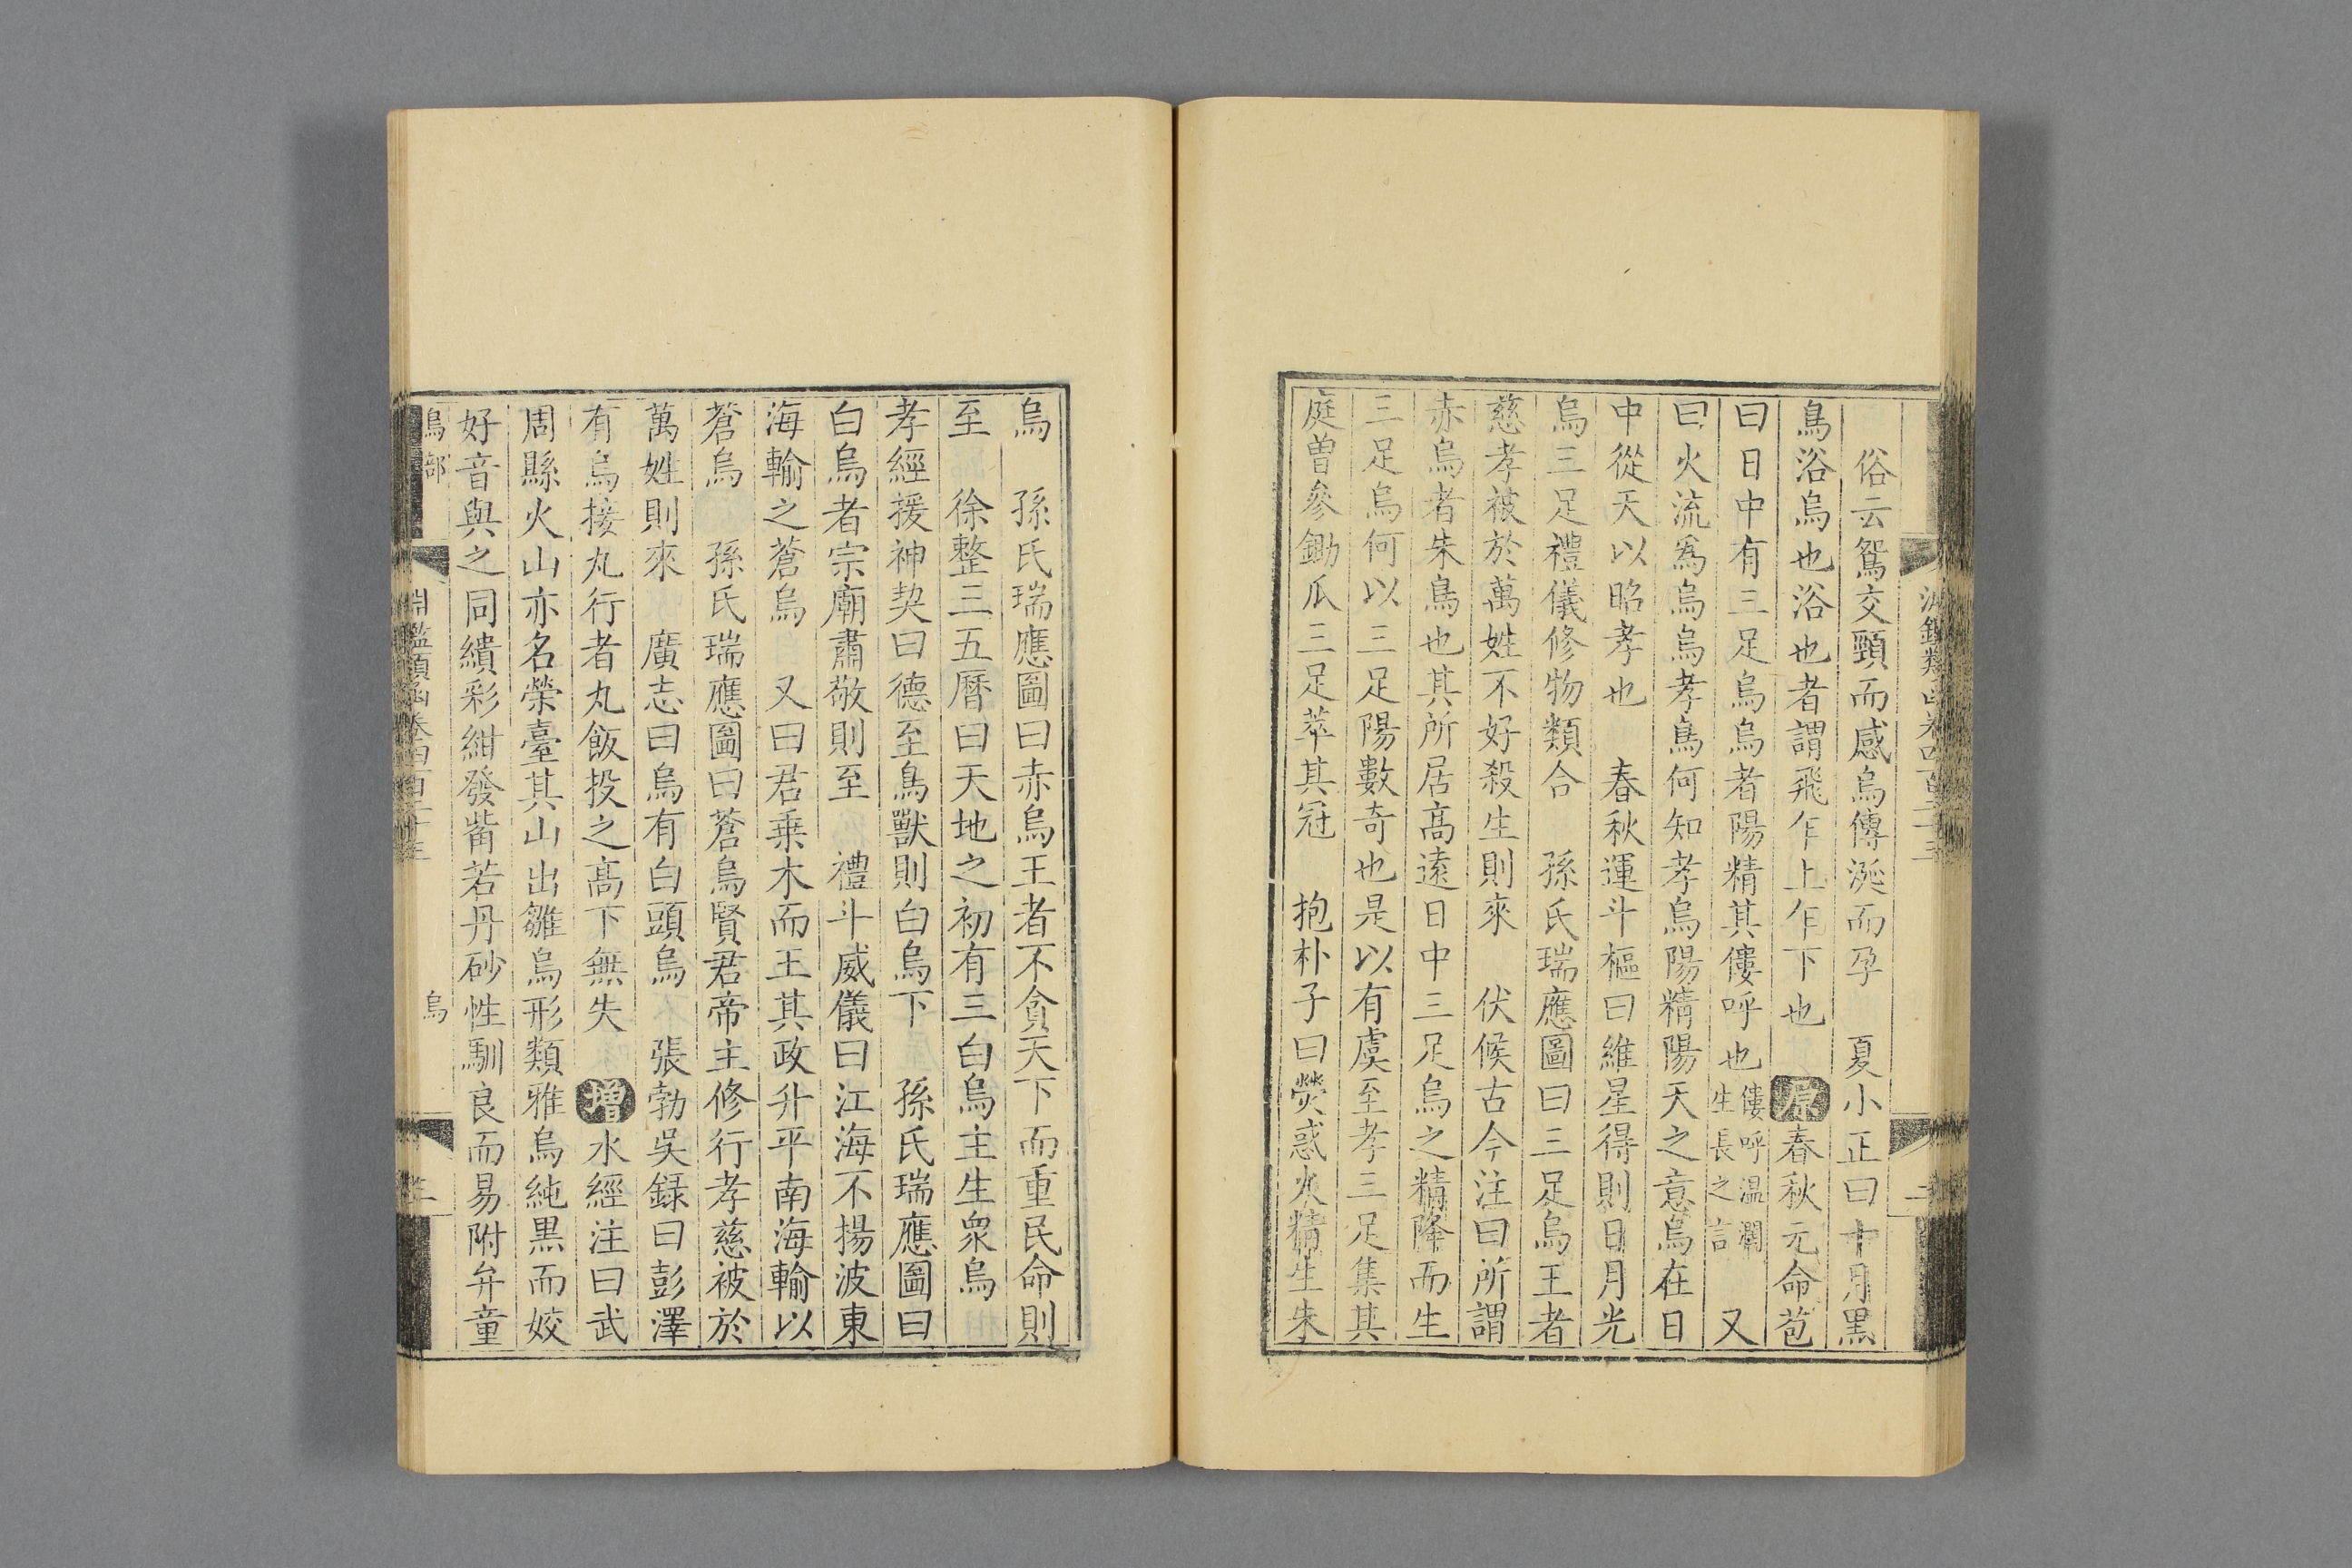 俗云鴛交頸而感烏傳涎而孕　夏小正曰十月黑
鳥浴烏也浴也者謂飛乍上乍下也　原春秋元命苞
曰日中有三足烏烏者陽精其僂呼也僂呼温潤生長之言　又
曰火流爲烏烏孝鳥何知孝烏陽精陽天之意烏在日
中從天以昭孝也　春秋運斗樞曰維星得則日月光
烏三足禮儀修物類合　孫氏瑞應圖曰三足烏王者
慈孝被於萬姓不好殺生則來　伏候古今注曰所謂
赤烏者朱鳥也其所居高遠日中三足烏之精降而生
三足烏何以三足陽數奇也是以有虞至孝三足集其
庭曽參鋤瓜三足萃其冠　抱朴子曰熒惑火精生朱
烏　孫氏瑞應圖曰赤烏王者不貪天下而重民命則
至　徐整三五曆曰天地之初有三白烏主生衆烏
孝經援神契曰德至鳥獸則白烏下　孫氏瑞應圖曰
白烏者宗廟肅敬則至　禮斗威儀曰江海不揚波東
海輸之蒼烏　又曰君乗木而王其政升平南海輸以
蒼烏　孫氏瑞應圖曰蒼烏賢君帝主修行孝慈被於
萬姓則來　廣志曰烏有白頭烏　張勃吳録曰彭澤
有烏接丸行者丸飯投之高下無失　增水經注曰武
周縣火山亦名熒臺其山出雛烏形類雅烏純黑而姣
好音與之同繢彩紺發觜若丹砂性馴良而易附弁童
鳥部　淵鑑類函卷四百二十三　烏　二